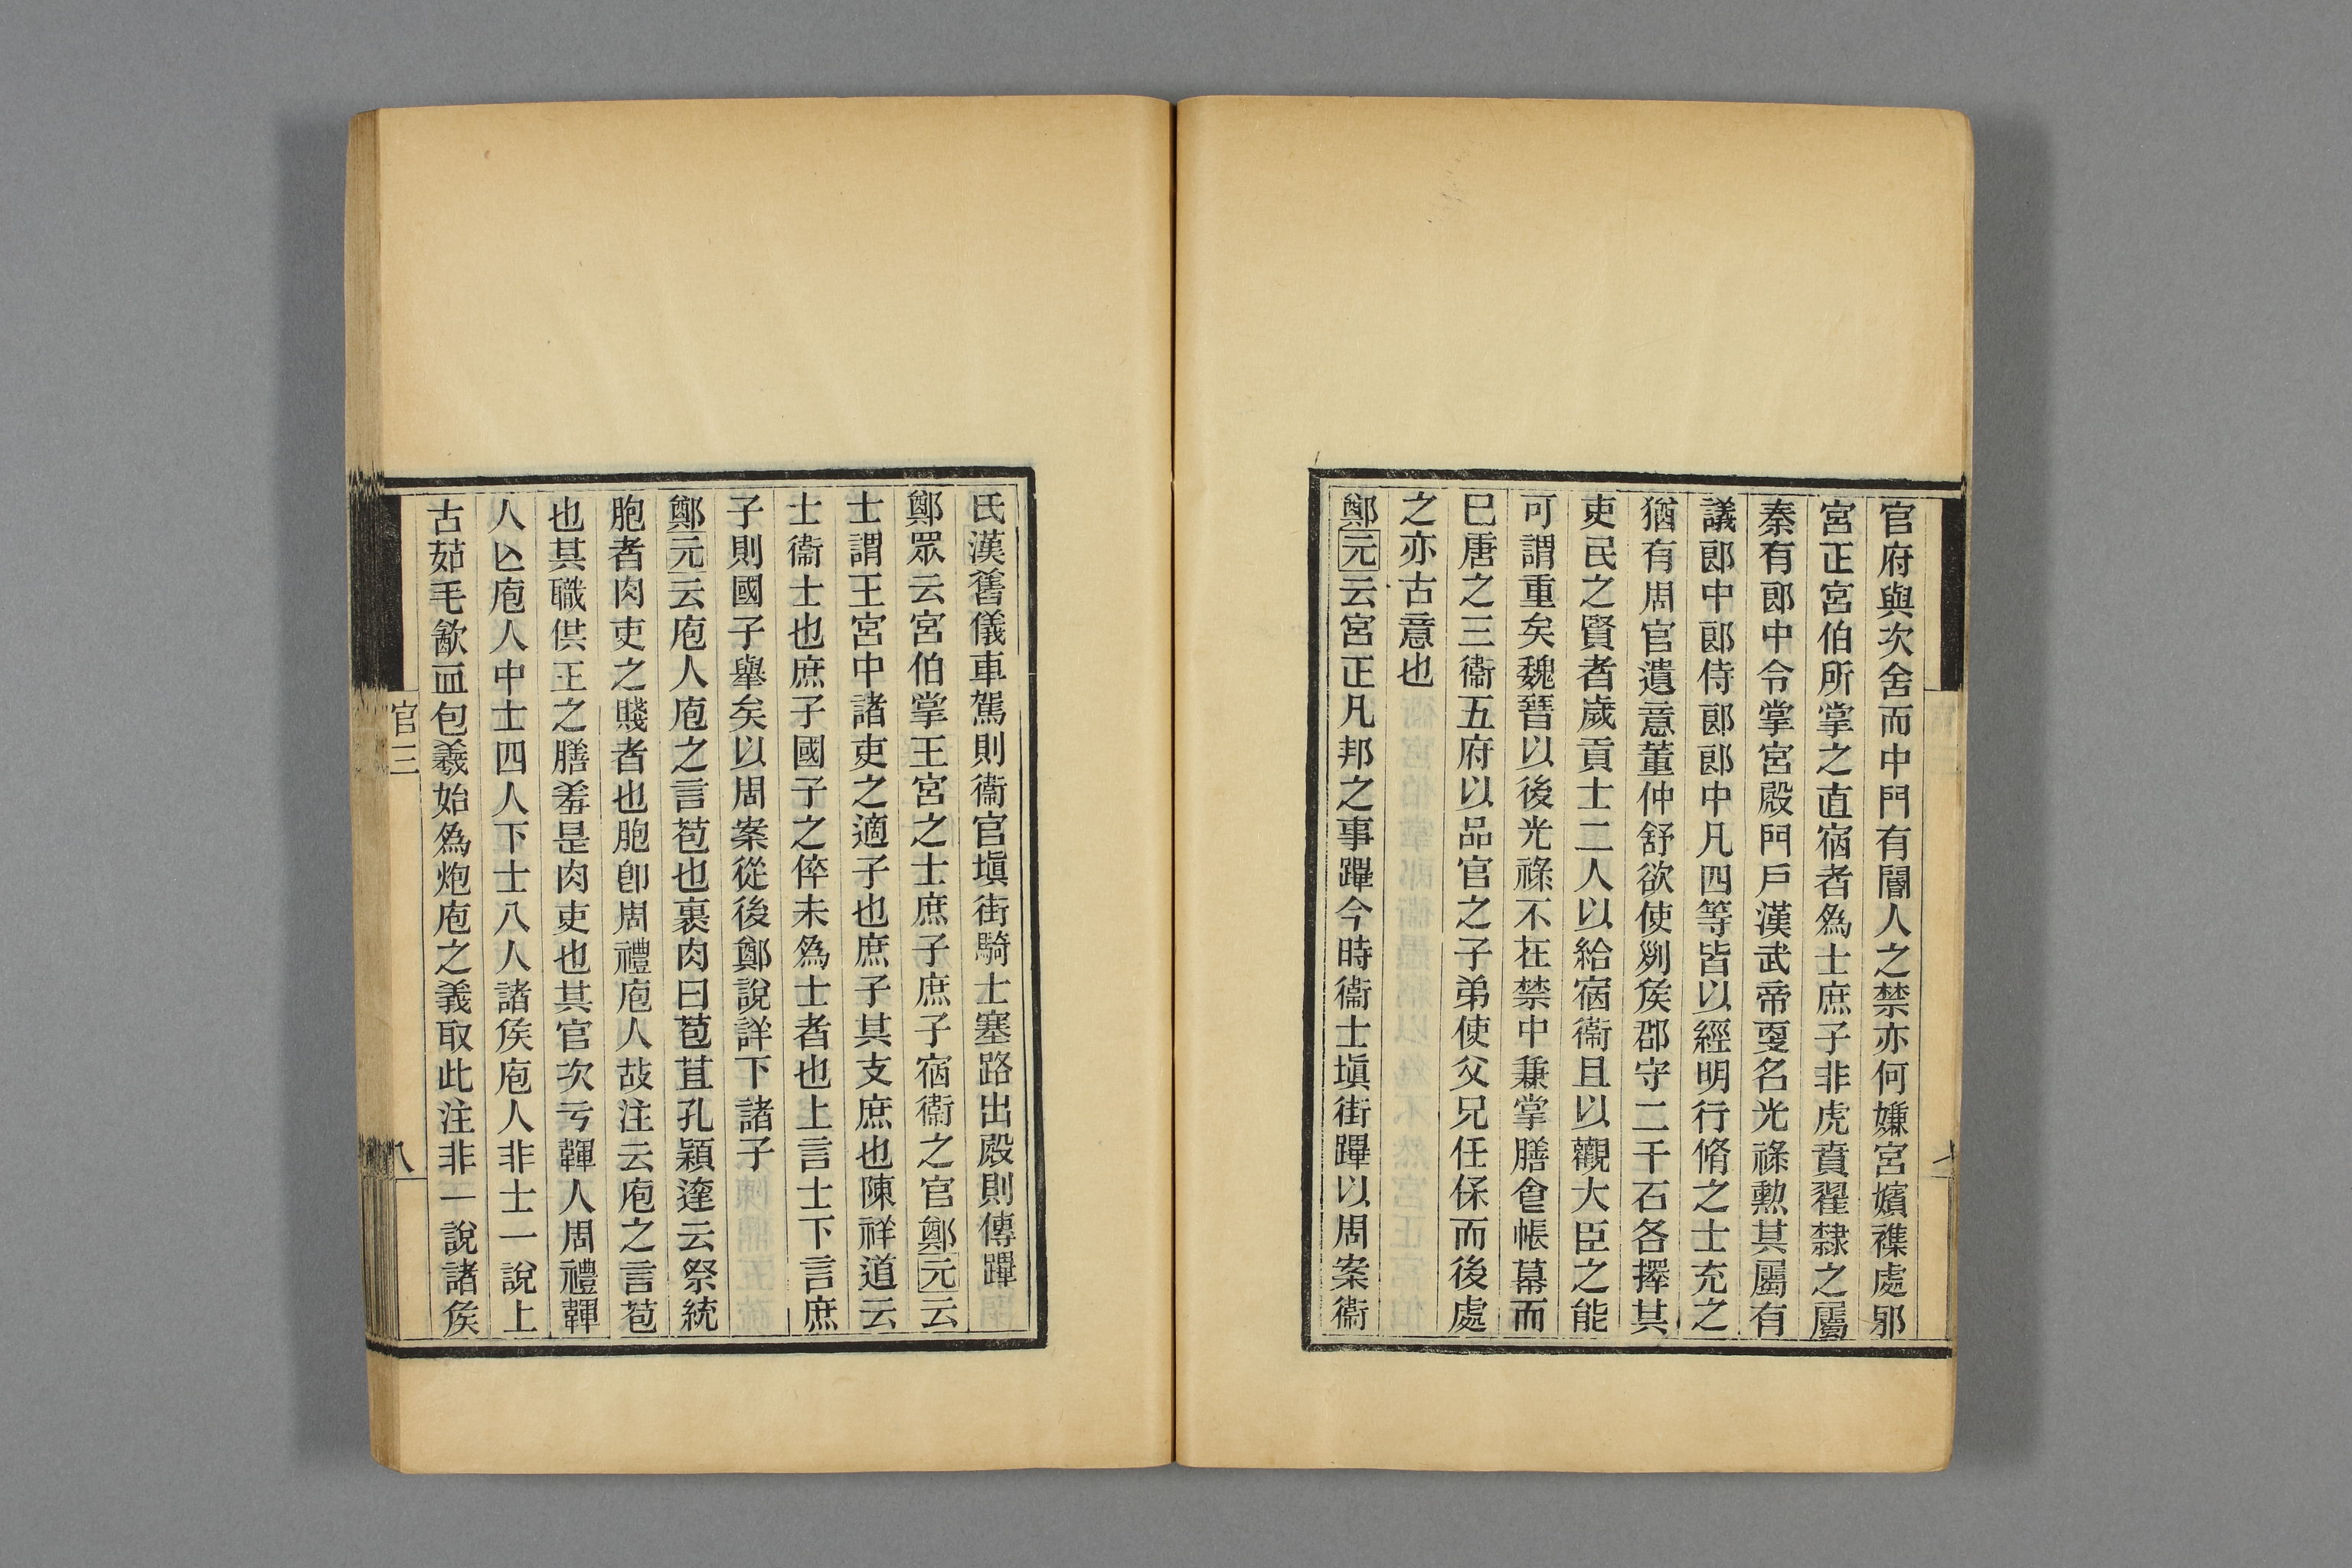 官府與次舍而中門有閽人之禁亦何嫌宮嬪襍處邪
宮正宮伯所掌之直宿者為士庶子非虎賁翟隸之屬
秦有郎中令掌宮殿門戶漢武帝更名光祿勲其屬有
議郎中郎侍郎郎中凡四等皆以經明行脩之士充之
猶有周官遺意董仲舒欲使列矦郡守二千石各擇其
吏民之賢者歲貢士二人以給宿衞且以觀大臣之能
可謂重矣魏晉以後光祿不在禁中兼掌膳食帳幕而
已唐之三衞五府以品官之子弟使父兄任保而後處
之亦古意也
鄭元云宮正凡邦之事蹕今時衞士塡街蹕以周案衞
氏漢舊儀車駕則衞官塡街騎士塞路出殿則傳蹕
鄭眾云宮伯掌王宮之士庶子庶子宿衞之官鄭元云
士謂王宮中諸吏之適子也庶子其支庶也陳祥道云
士衞士也庶子國子之倅未為士者也上言士下言庶
子則國子舉矣以周案從後鄭說詳下諸子
鄭元云庖人庖之言苞也裹肉曰苞苴孔穎達云祭統
胞者肉吏之賤者也胞卽周禮庖人故注云庖之言苞
也其職供王之膳羞是肉吏也其官次亏韗人周禮韗
人亾庖人中士四人下士八人諸矦庖人非士一說上
古茹毛歙血包羲始為炮庖之義取此注非一說諸矦
官三
八